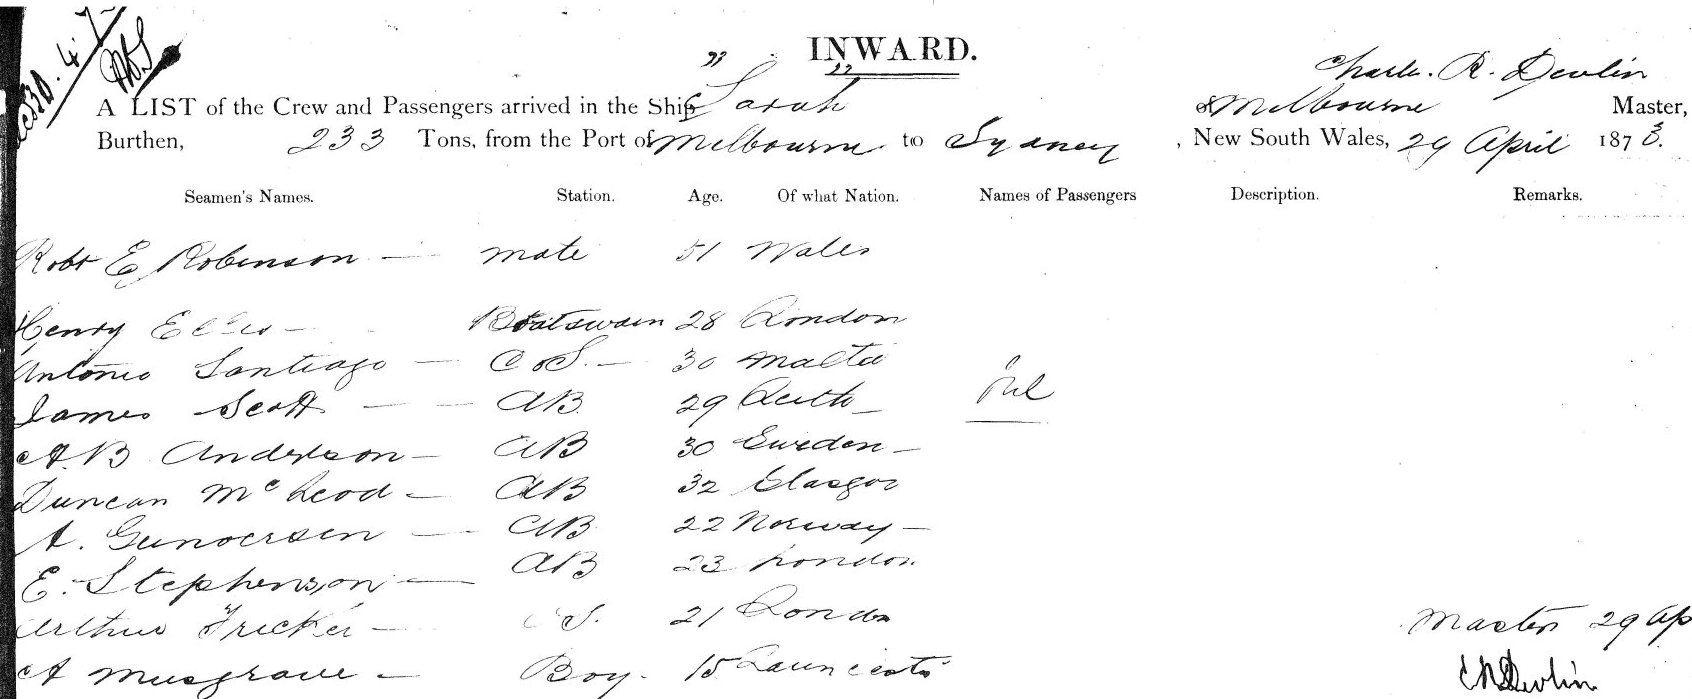 INWARD.
Charles R. Devlin
A LIST of the Crew and Passengers arrived in the Ship "Sarah" of Melbourne Master,
Burthen, 233 Tons, from the Port of Melbourne to Sydney , New South Wales, 29 April 1873.
Seamen's Names. Station. Age. Of what Nation. Names of Passengers Description. Remarks.
Robt E Robinson — mate 51 Wales
Henry — Boatswain 28 London
Antonio Santiago — 30 Malta
James Scott — — AB 29 Leith — Nil
A. B Anderson — AB 30 Sweden —
Duncan McLeod — AB 32 Glasgow
A. Gunversen — AB 22 Norway —
E. Stephenson — AB 23 London
Arthur Fricker — 21 London
A Musgrave — Boy. 15
Master 29 Ap
C R Devlin